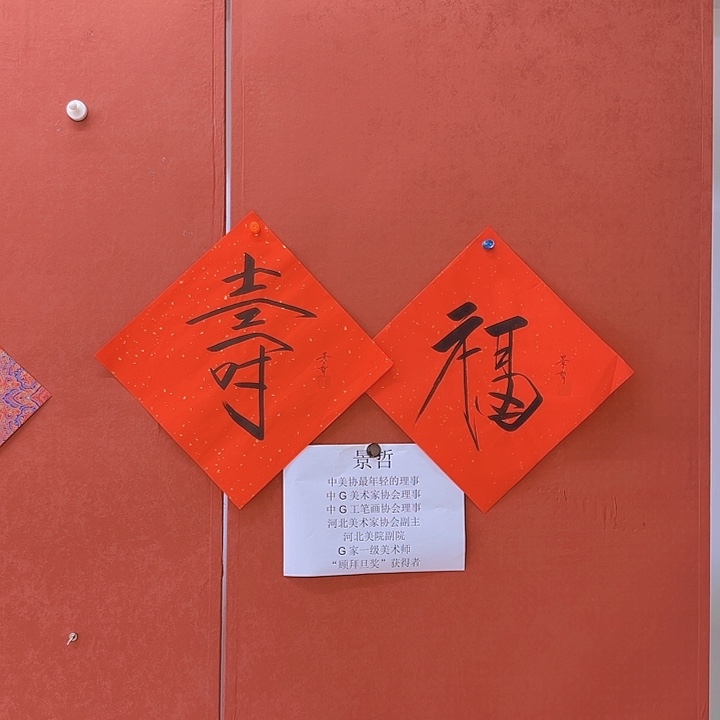 寿
福
景哲
中美协最年轻的理事
中G美术家协会理事
中G工笔画协会理事
河北美术家协会副主
河北美院副院
G家一级美术师
“顾拜旦奖”获得者